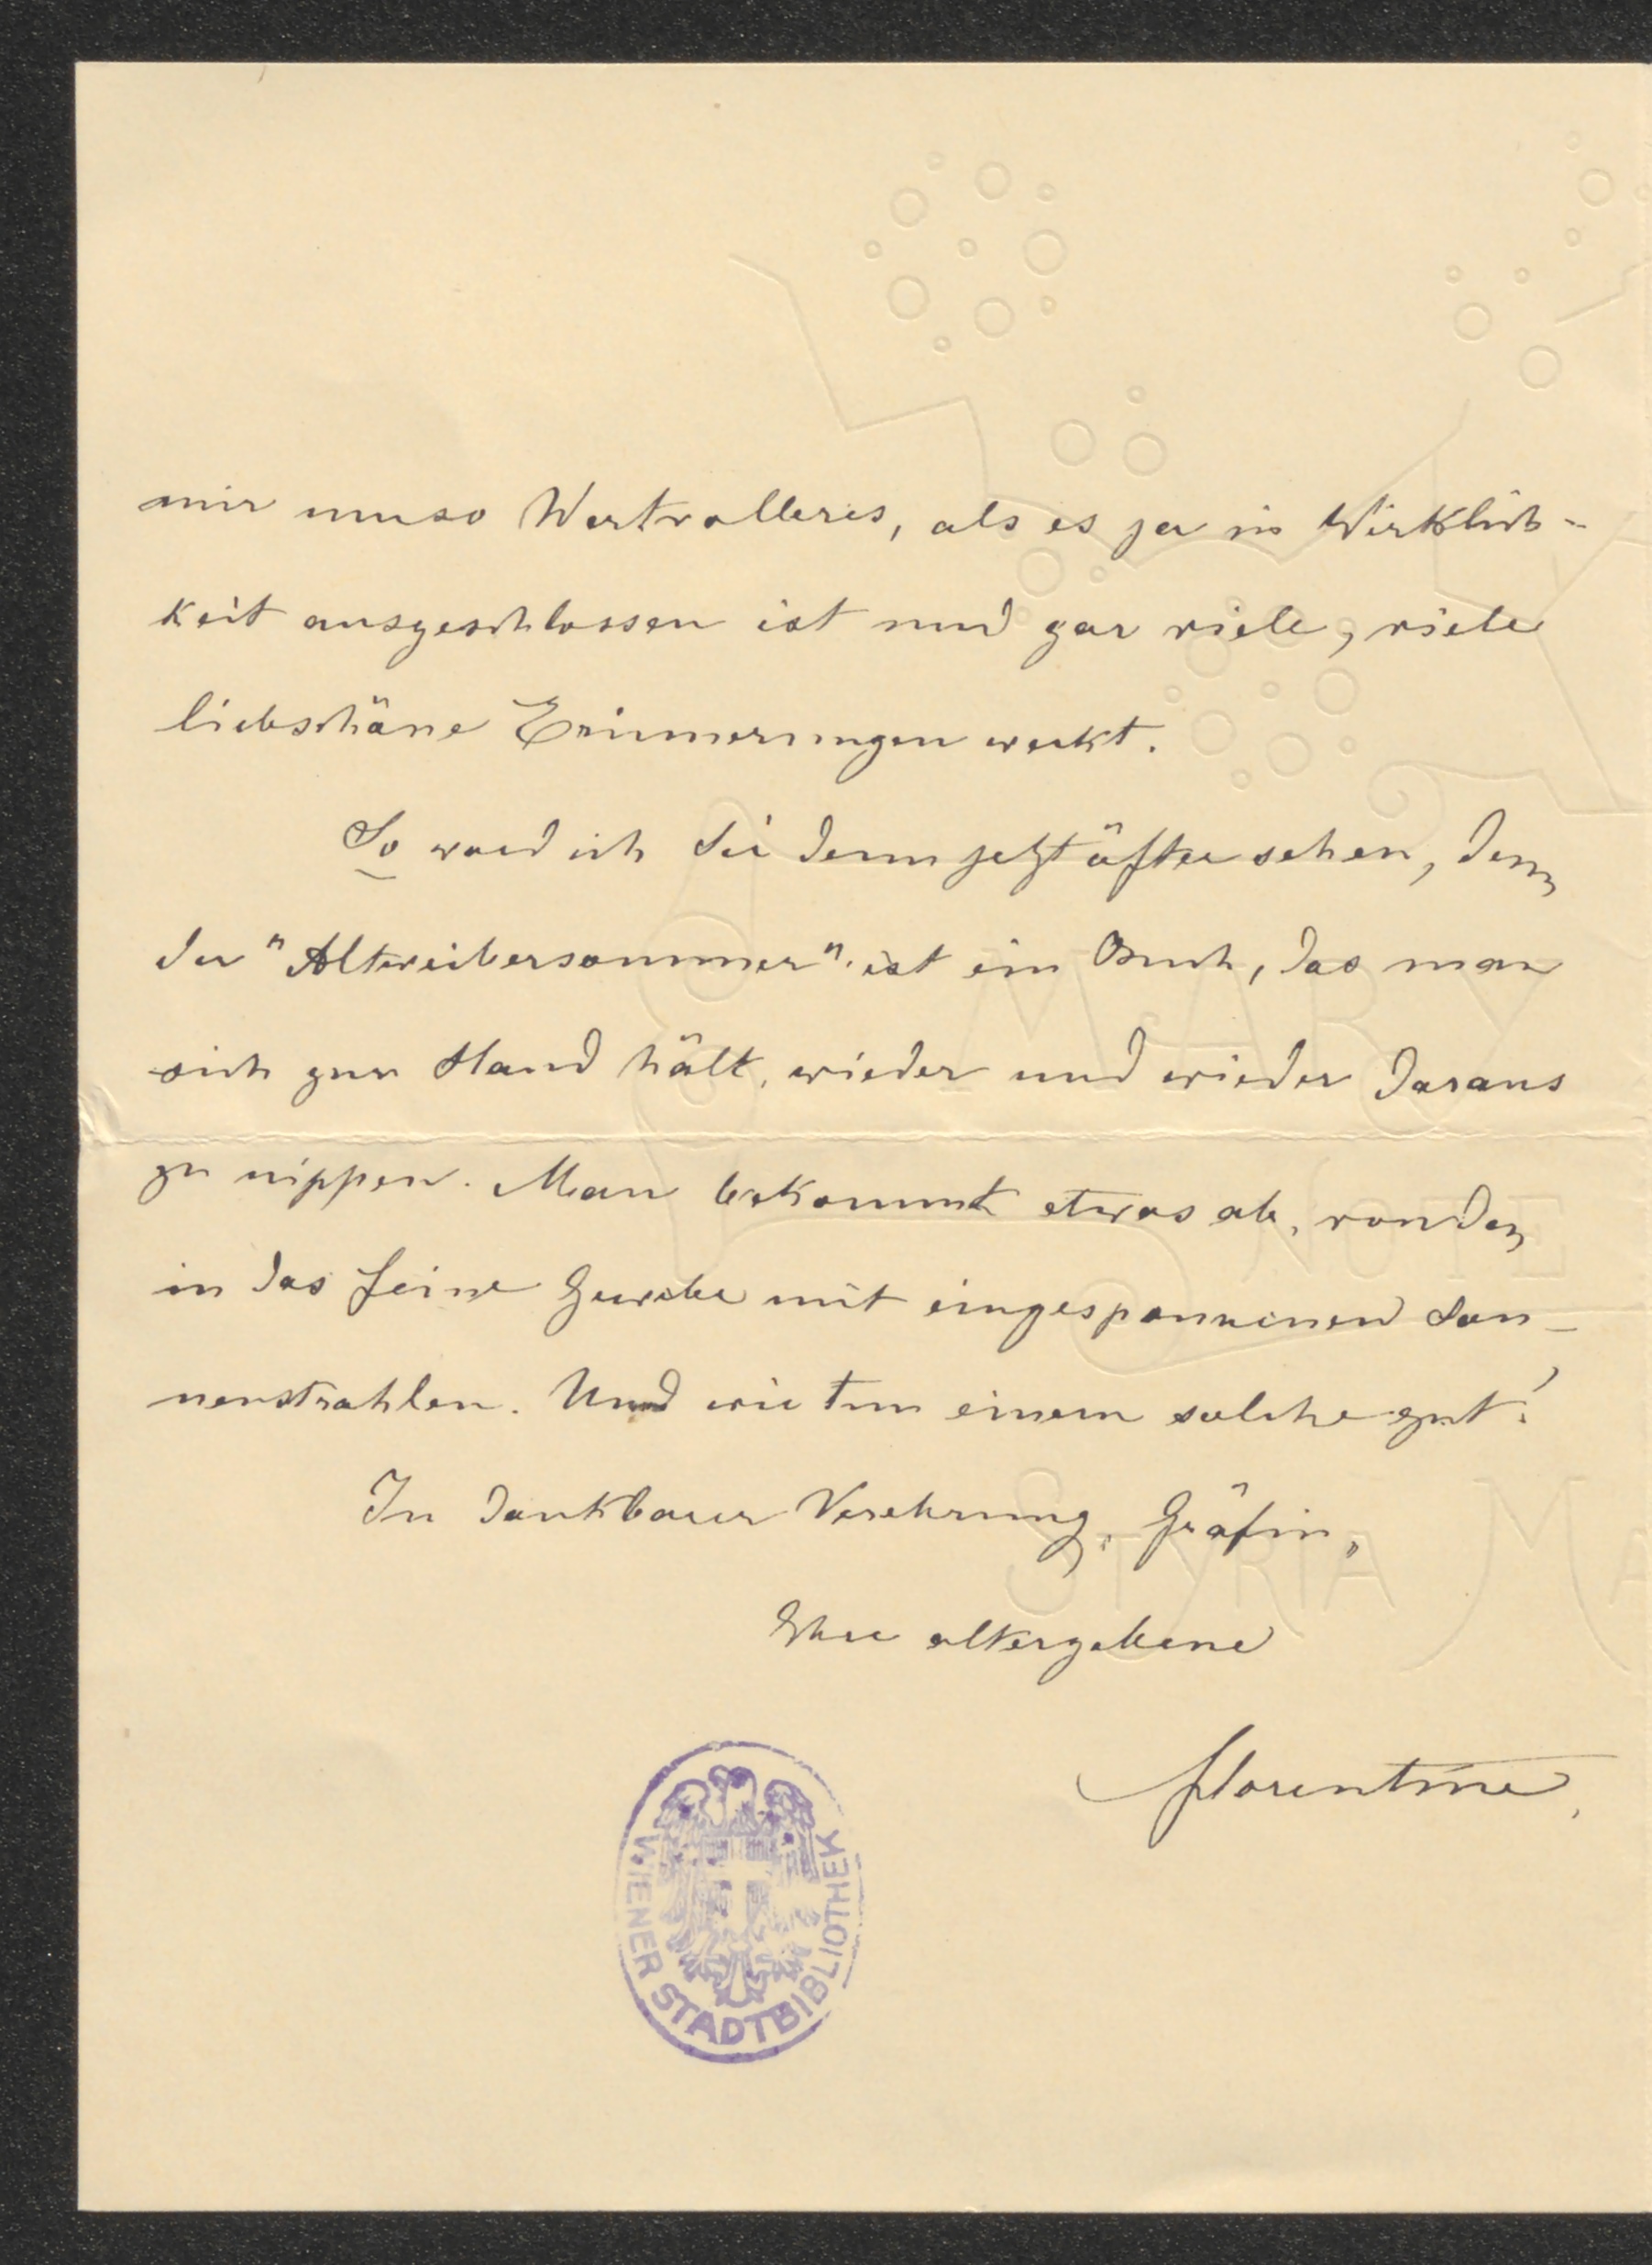 mir umso Wertvolleres, als es ja in Wirklich-
keit ausgeschlossen ist und gar viele, viele
liebschöne Erinnerungen weckt.
So werd ich Sie denn jetzt öfter sehen, denn
der "Altweibersommer" ist ein Buch, das man
sich zur Hand hält, wieder und wieder daraus
zu nippen. Man bekommt etwas ab, von den
in das feine Gewebe mit eingesponnenen Son-
nenstrahlen. Und wie tun einem solche gut!
In dankbarer Verehrung, Gräfin,
Ihre altergebene
Florentine.
WIENER STADTBIBLIOTHEK
MARY
NOTE
STYRIA